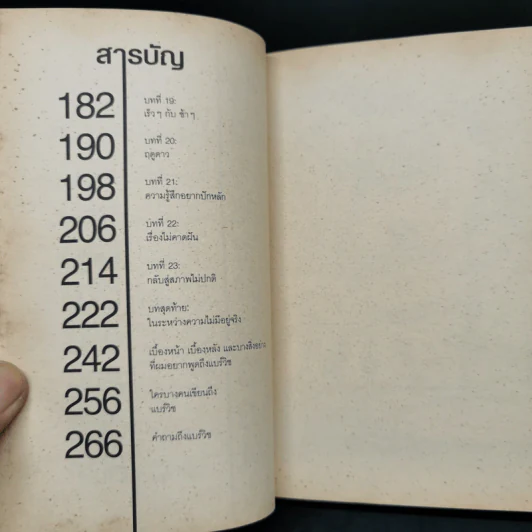 สารบัญ
182 บทที่ 19:
เร็วๆ กับ ช้าๆ
190 บทที่ 20:
ฤดูดาว
198 บทที่ 21:
ความรู้สึกอยากปักหลัก
206 บทที่ 22:
เรื่องไม่คาดฝัน
214 บทที่ 23:
กลับสู่สภาพไม่ปกติ
222 บทสุดท้าย:
ในระหว่างความไม่มีอยู่จริง
242 เบื้องหน้า เบื้องหลัง และบางสิ่งอย่าง
ที่ผมอยากพูดถึงแบร์วิช
256 ใครบางคนเขียนถึง
แบร์วิช
266 คำถามถึงแบร์วิช